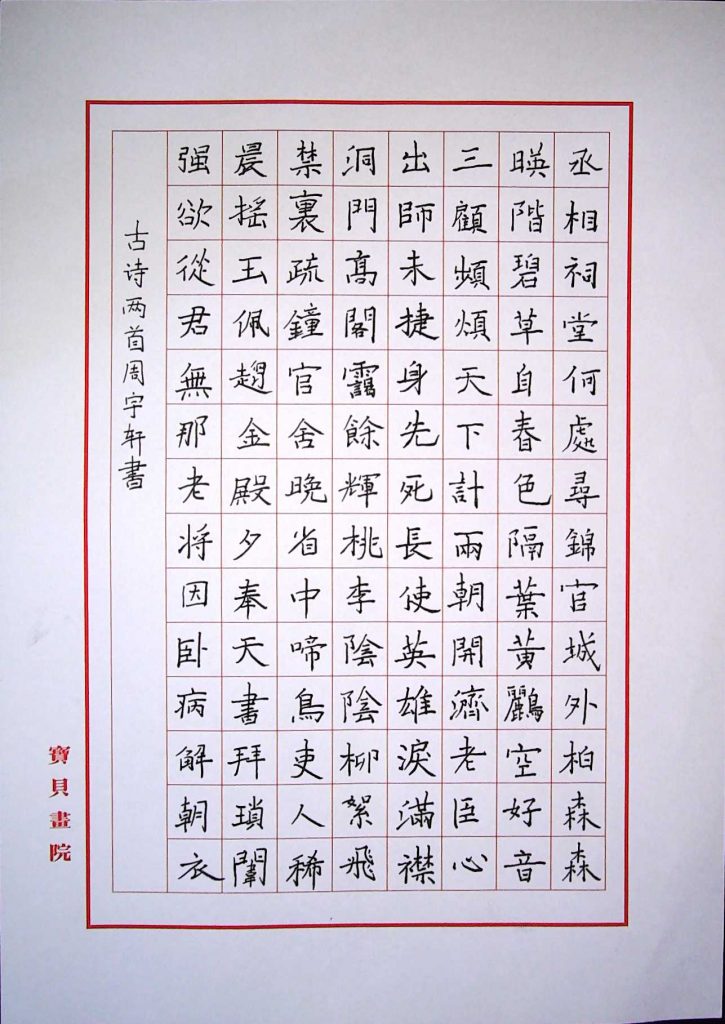 丞相祠堂何處尋錦官城外柏森森
暎階碧草自春色隔葉黃鸝空好音
三顧頻煩天下計兩朝開濟老臣心
出師未捷身先死長使英雄淚滿襟
洞門高閣靄餘輝桃李陰陰柳絮飛
禁裏疏鐘官舍晚省中啼鳥吏人稀
晨搖玉佩趨金殿夕奉天書拜瑣闈
强欲從君無那老将因卧病解朝衣
古诗两首周宇轩書
寶貝畫院